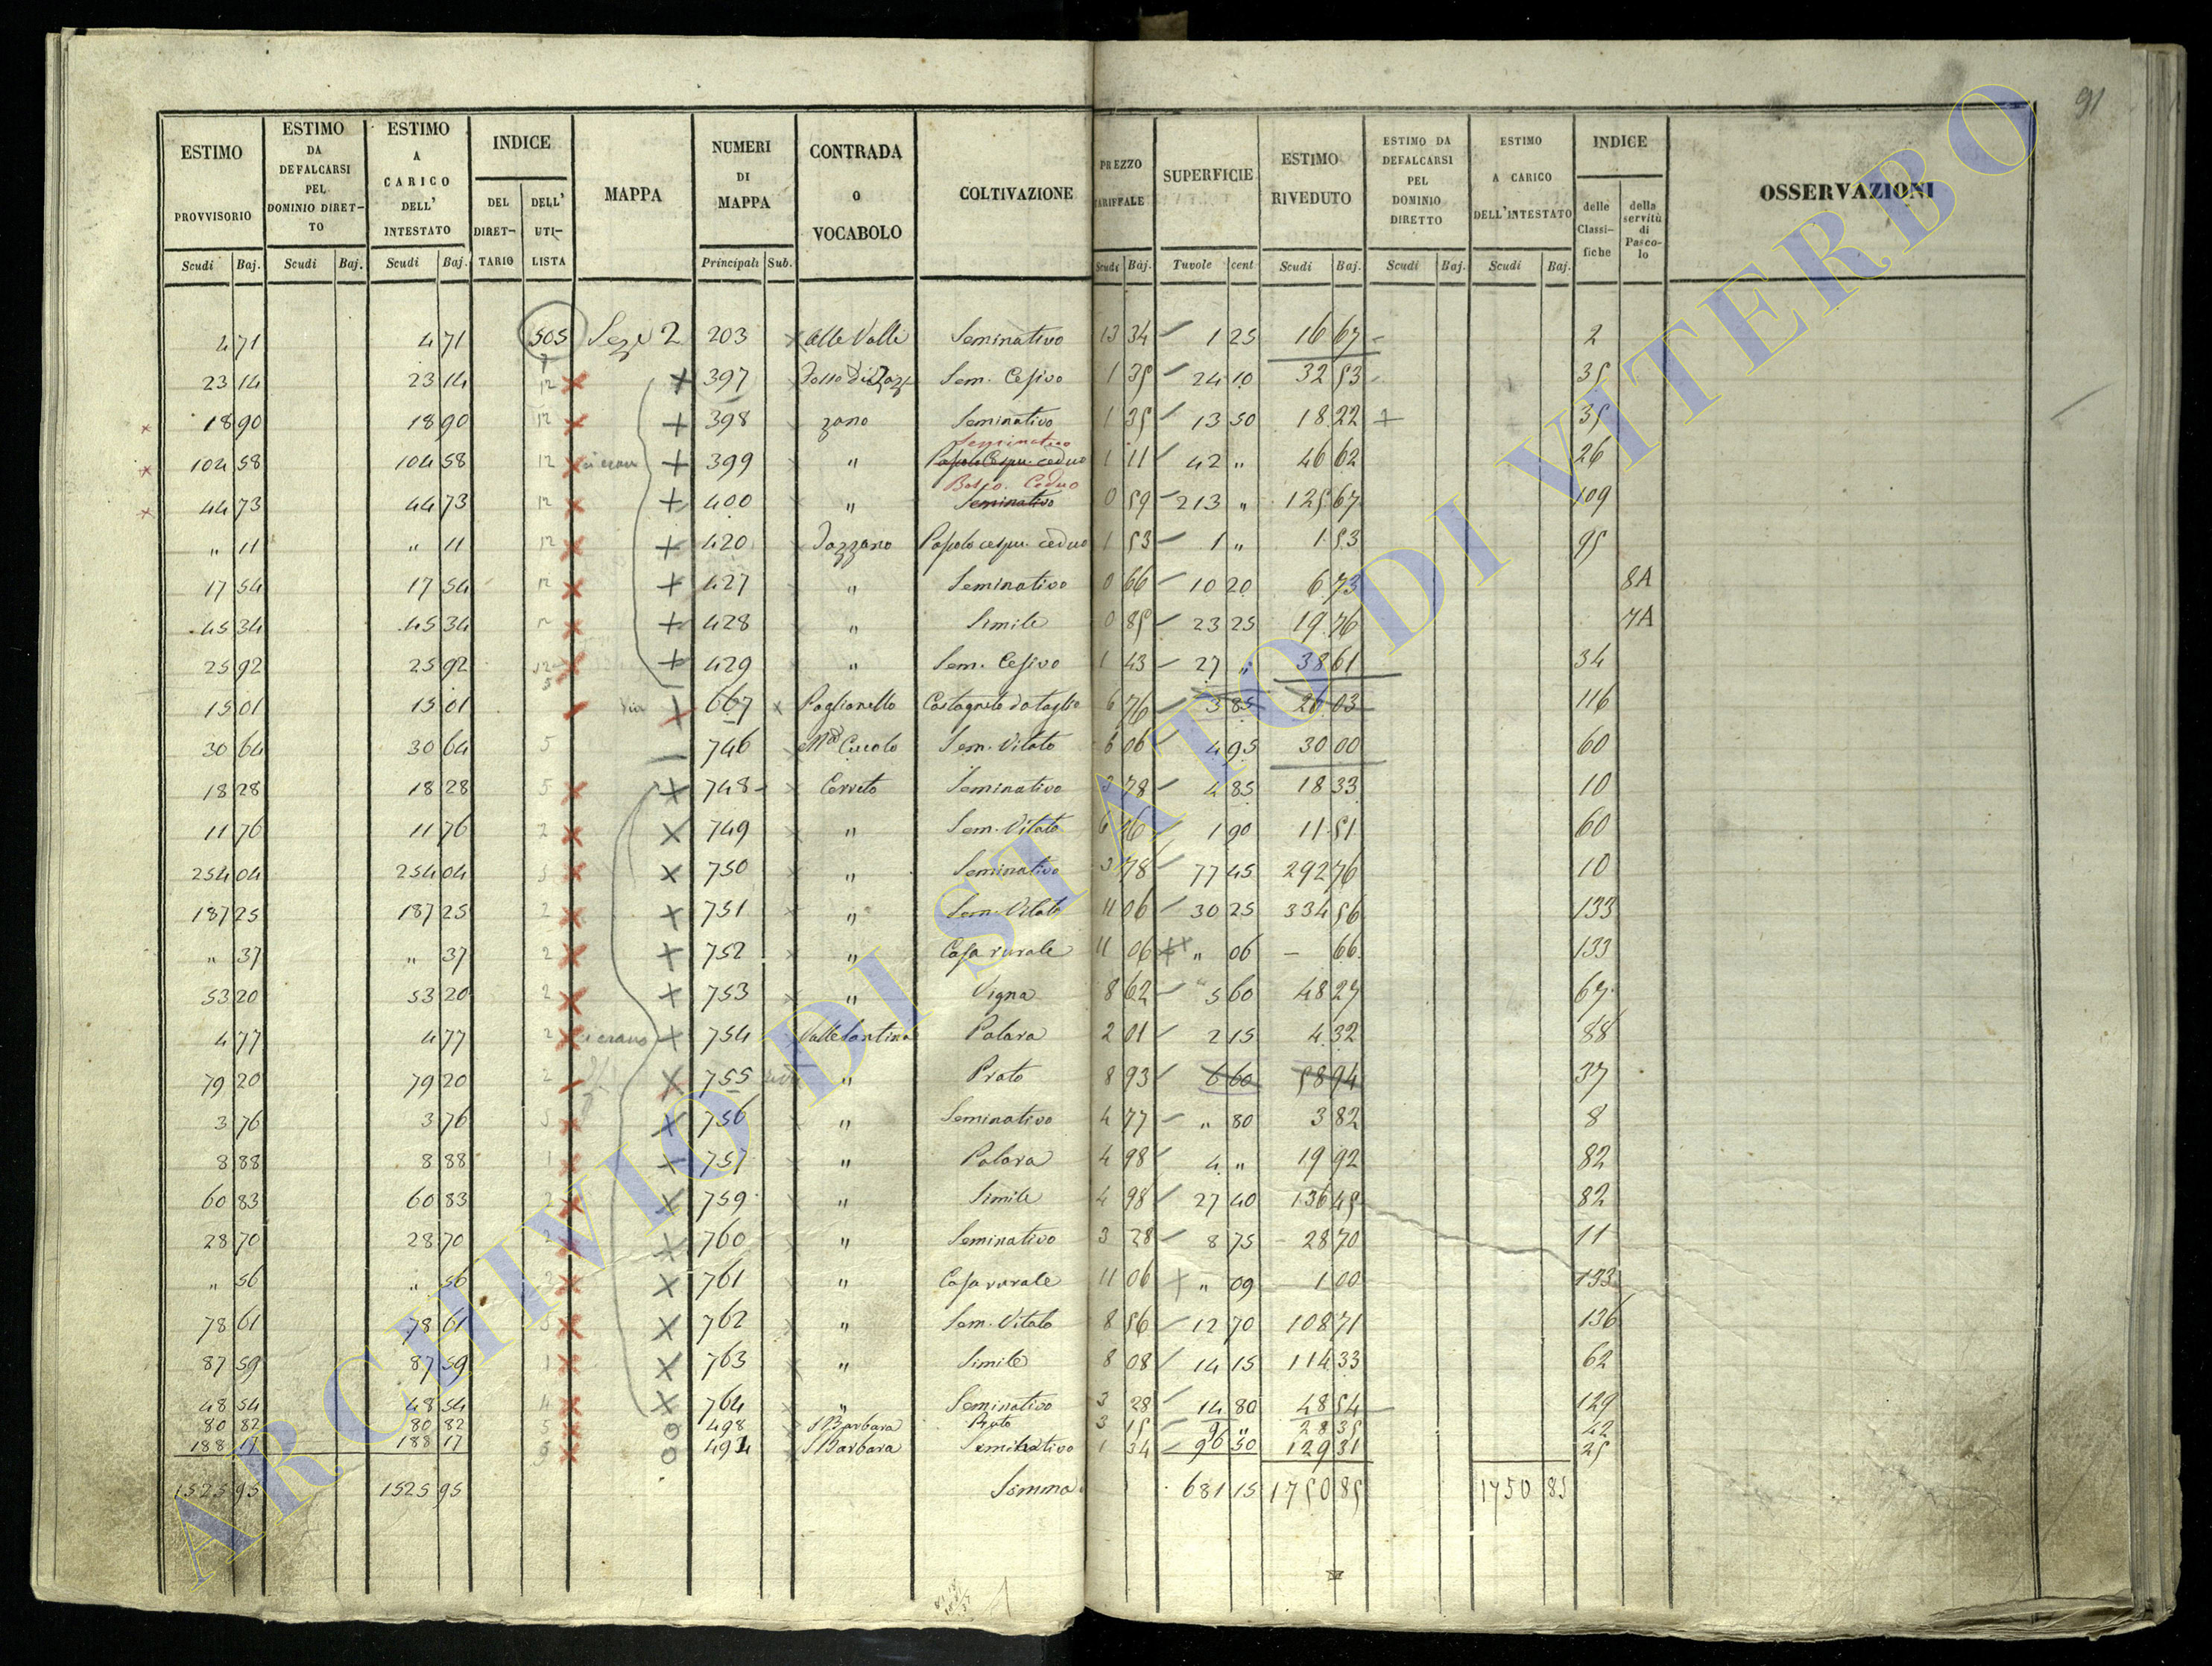 91
ESTIMO PROVVISORIO | ESTIMO DA DEFALCARSI PEL DOMINIO DIRET-TO | ESTIMO A CARICO DELL' INTESTATO | INDICE DEL DIRET-TARIO | DELL' UTI-LISTA | MAPPA | NUMERI DI MAPPA | CONTRADA O VOCABOLO | COLTIVAZIONE | PREZZO TARIFFALE | SUPERFICIE | ESTIMO RIVEDUTO | ESTIMO DA DEFALCARSI PEL DOMINIO DIRETTO | ESTIMO A CARICO DELL'INTESTATO | INDICE delle Classi-fiche | della servitù di Pasco-lo | OSSERVAZIONI
Scudi Baj. | Scudi Baj. | Scudi Baj. | Principali Sub. | Scudi Baj. | Tavole cent | Scudi Baj. | Scudi Baj. | Scudi Baj.
4 71 | 4 71 | 505 | Seze 2 | 203 | Alle Valle | Seminativo | 13 34 | 1 25 | 16 67 | 2
23 14 | 23 14 | 12 | + 397 | Sem. Cesivo | 1 35 | 24 10 | 32 53 | 35
18 90 | 18 90 | 12 | + 398 | zano | Seminativo | 1 35 | 13 50 | 18 22 | 35
Seminativo
104 58 | 104 58 | 12 | + 399 | " | Pascolo Cespu. ceduo | 1 11 | 42 " | 46 62 | 26
Bosco Ceduo
44 73 | 44 73 | 12 | + 400 | " | Seminativo | 0 59 | 213 " | 125 67 | 109
" 11 | " 11 | 12 | + 420 | Pascolo cespu. ceduo | 1 53 | 1 " | 1 53 | 95
17 54 | 17 54 | 12 | + 427 | " | Seminativo | 0 66 | 10 20 | 6 73 | 8A
45 34 | 45 34 | 12 | + 428 | " | Simile | 0 85 | 23 25 | 19 76 | 7A
25 92 | 25 92 | 12 | + 429 | " | Sem. Cesivo | 1 43 | 27 " | 38 61 | 34
15 01 | 15 01 | 5 | + 667 | Paglianello | Castagneto da taglio | 6 76 | 3 85 | 26 03 | 116
30 64 | 30 64 | 5 | 746 | Sem. Vitato | 6 06 | 4 95 | 30 00 | 60
18 28 | 18 28 | 5 | + 748 | Cerreto | Seminativo | 3 78 | 4 85 | 18 33 | 10
11 76 | 11 76 | 2 | X 749 | " | Sem. Vitato | 6 06 | 1 90 | 11 51 | 60
254 04 | 254 04 | X 750 | " | Seminativo | 3 78 | 77 45 | 292 76 | 10
187 25 | 187 25 | 2 | X 751 | " | Sem. Vitato | 11 06 | 30 25 | 334 56 | 133
" 37 | " 37 | 2 | + 752 | " | Casa rurale | 11 06 | " 06 | – 66 | 133
53 20 | 53 20 | 2 | + 753 | " | Vigna | 8 62 | 5 60 | 48 27 | 67
4 77 | 4 77 | 2 | + 754 | Valle Santina | Palara | 2 01 | 2 15 | 4 32 | 88
79 20 | 79 20 | 2 | X 755 | " | Prato | 8 93 | 6 60 | 58 94 | 37
3 76 | 3 76 | X 756 | " | Seminativo | 4 77 | " 80 | 3 82 | 8
8 88 | 8 88 | 1 | X 757 | " | Palara | 4 98 | 4 " | 19 92 | 82
60 83 | 60 83 | 2 | X 759 | " | Simile | 4 98 | 27 40 | 136 45 | 82
28 70 | 28 70 | 2 | X 760 | " | Seminativo | 3 28 | 8 75 | 28 70 | 11
" 56 | " 56 | 2 | X 761 | " | Casa rurale | 11 06 | " 09 | 1 00 | 133
78 61 | 78 61 | X 762 | " | Sem. Vitato | 8 56 | 12 70 | 108 71 | 136
87 59 | 87 59 | 1 | X 763 | " | Simile | 8 08 | 14 15 | 114 33 | 62
48 54 | 48 54 | 4 | X 764 | " | Seminativo | 3 28 | 14 80 | 48 54 | 129
80 82 | 80 82 | 5 | O 498 | S Barbara | Prato | 3 15 | 9 " | 28 35 | 42
188 17 | 188 17 | 5 | O 494 | S Barbara | Seminativo | 1 34 | 96 50 | 129 31 | 25
1525 95 | 1525 95 | Somma | 681 15 | 1750 85 | 1750 85
ARCHIVIO DI STATO DI VITERBO